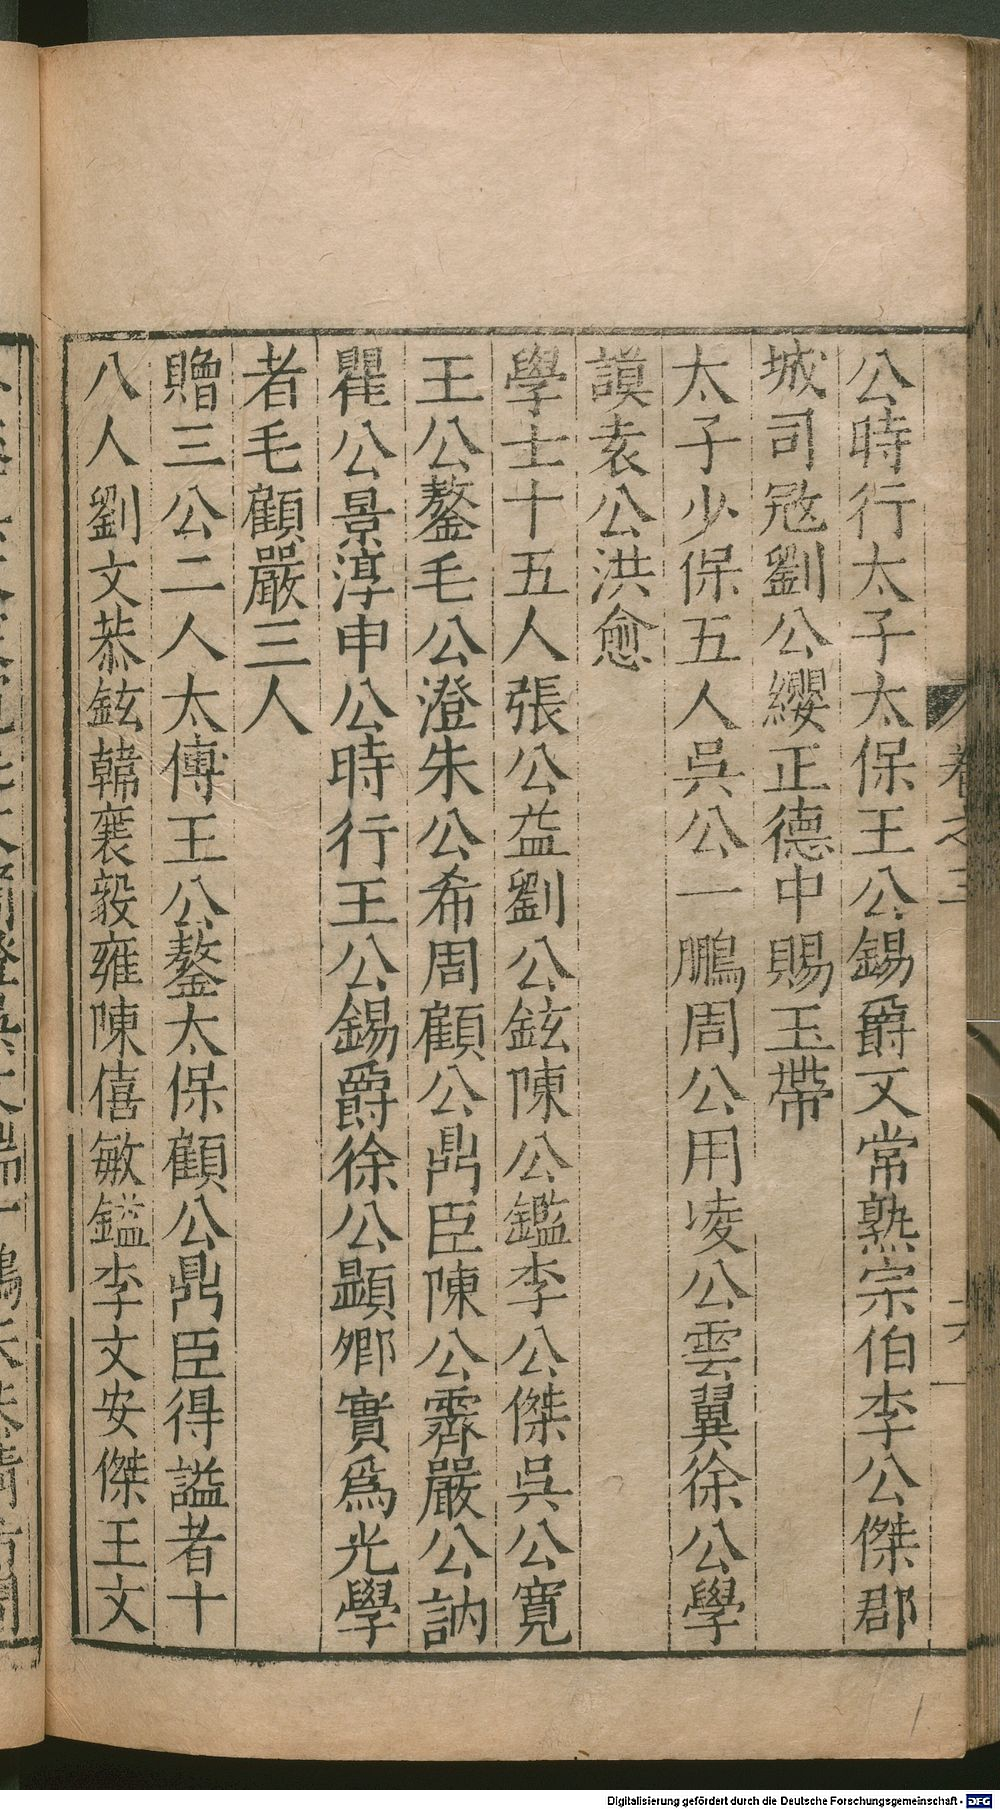 公時行太子太保王公錫爵又常熟宗伯李公傑郡
城司冦劉公纓正德中賜玉帶
太子少保五人吳公一鵬周公用凌公雲翼徐公學
謨袁公洪愈
學士十五人張公益劉公鉉陳公鑑李公傑吳公寬
王公鏊毛公澄朱公希周顧公鼎臣陳公霽嚴公訥
瞿公景淳申公時行王公錫爵徐公顯卿實爲光學
者毛顧嚴三人
贈三公二人太傅王公鏊太保顧公鼎臣得謚者十
八人劉文恭鉉韓襄毅雍陳僖敏鎰李文安傑王文
卷之三
六
Digitalisierung gefördert durch die Deutsche Forschungsgemeinschaft - DFG